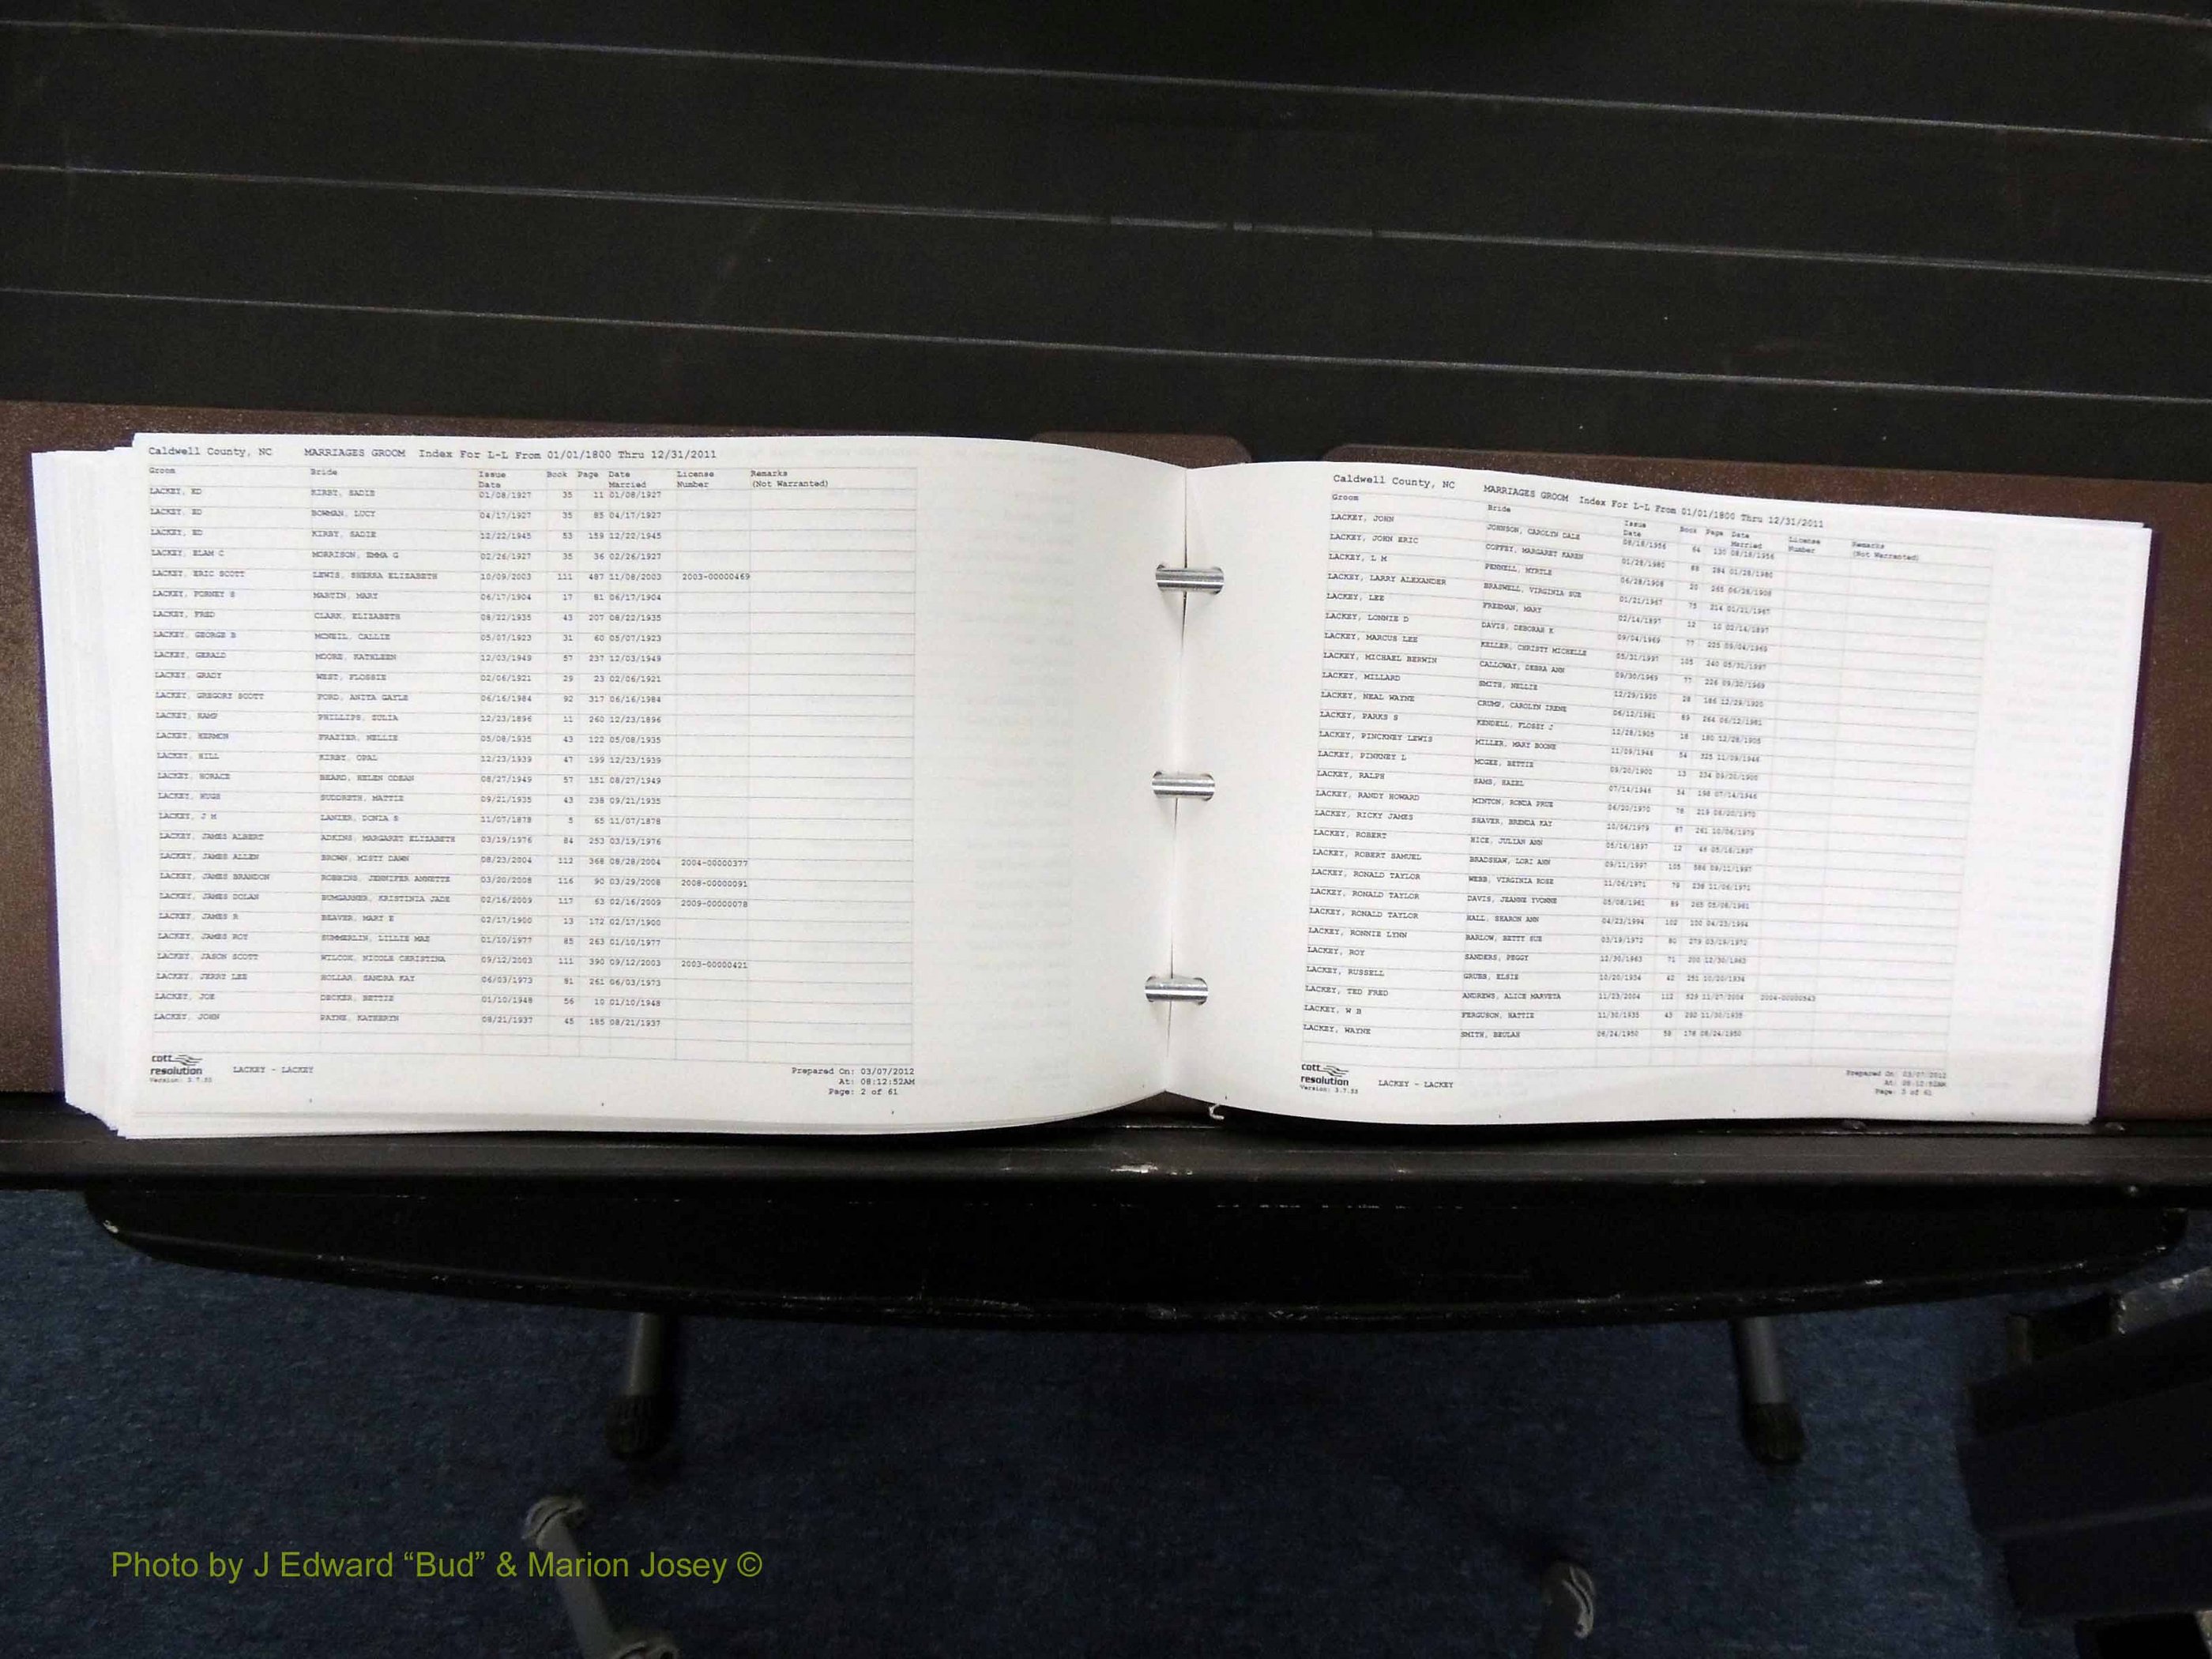 Caldwell County, NC MARRIAGES GROOM Index For L-L From 01/01/1800 Thru 12/31/2011
Groom Bride Issue Date Book Page Date Married License Number Remarks (Not Warranted)
LACKEY, ED KIRBY, SADIE 01/08/1927 35 11 01/08/1927
LACKEY, ED BOWMAN, LUCY 04/17/1927 35 85 04/17/1927
LACKEY, ED KIRBY, SADIE 12/22/1945 53 159 12/22/1945
LACKEY, ELAM C MORRISON, EMMA G 02/26/1927 35 36 02/26/1927
LACKEY, ERIC SCOTT LEWIS, SHERRA ELIZABETH 10/09/2003 111 487 11/08/2003 2003-00000469
LACKEY, FORNEY S MARTIN, MARY 06/17/1904 17 81 06/17/1904
LACKEY, FRED CLARK, ELIZABETH 08/22/1935 43 207 08/22/1935
LACKEY, GEORGE B MCNEIL, CALLIE 05/07/1923 31 60 05/07/1923
LACKEY, GERALD MOORE, KATHLEEN 12/03/1949 57 237 12/03/1949
LACKEY, GRADY WEST, FLOSSIE 02/06/1921 29 23 02/06/1921
LACKEY, GREGORY SCOTT FORD, ANITA GAYLE 06/16/1984 92 317 06/16/1984
LACKEY, HAMP PHILLIPS, ZULIA 12/23/1896 11 260 12/23/1896
LACKEY, HERMON FRAZIER, NELLIE 05/08/1935 43 122 05/08/1935
LACKEY, HILL KIRBY, OPAL 12/23/1939 47 199 12/23/1939
LACKEY, HORACE BEARD, HELEN ODEAN 08/27/1949 57 151 08/27/1949
LACKEY, HUGH SUDDRETH, MATTIE 09/21/1935 43 238 09/21/1935
LACKEY, J M LANIER, DONIA S 11/07/1878 5 65 11/07/1878
LACKEY, JAMES ALBERT ADKINS, MARGARET ELIZABETH 03/19/1976 84 253 03/19/1976
LACKEY, JAMES ALLEN BROWN, MISTY DAWN 08/23/2004 112 368 08/28/2004 2004-00000377
LACKEY, JAMES BRANDON ROBBINS, JENNIFER ANNETTE 03/20/2008 116 90 03/29/2008 2008-00000091
LACKEY, JAMES DOLAN BUMGARNER, KRISTINIA JADE 02/16/2009 117 63 02/16/2009 2009-00000078
LACKEY, JAMES R BEAVER, MARY E 02/17/1900 13 172 02/17/1900
LACKEY, JAMES ROY SUMMERLIN, LILLIE MAE 01/10/1977 85 263 01/10/1977
LACKEY, JASON SCOTT WILCOX, NICOLE CHRISTINA 09/12/2003 111 390 09/12/2003 2003-00000421
LACKEY, JERRY LEE HOLLAR, SANDRA KAY 06/03/1973 81 261 06/03/1973
LACKEY, JOE DECKER, BETTIE 01/10/1948 56 10 01/10/1948
LACKEY, JOHN PAYNE, KATHERYN 08/21/1937 45 185 08/21/1937
cott resolution
Version: 3.7.53
LACKEY - LACKEY
Prepared On: 03/07/2012
At: 08:12:52AM
Page: 2 of 61
Caldwell County, NC MARRIAGES GROOM Index For L-L From 01/01/1800 Thru 12/31/2011
Groom Bride Issue Date Book Page Date Married License Number Remarks (Not Warranted)
LACKEY, JOHN JOHNSON, CAROLYN DALE 08/18/1956 64 130 08/18/1956
LACKEY, JOHN ERIC COFFEY, MARGARET KAREN 01/28/1980 88 284 01/28/1980
LACKEY, L M PENNELL, MYRTLE 06/28/1908 20 265 06/28/1908
LACKEY, LARRY ALEXANDER BRASWELL, VIRGINIA SUE 01/21/1967 75 214 01/21/1967
LACKEY, LEE FREEMAN, MARY 02/14/1897 12 10 02/14/1897
LACKEY, LONNIE D DAVIS, DEBORAH K 09/04/1969 77 225 09/04/1969
LACKEY, MARCUS LEE KELLER, CHRISTY MICHELLE 05/31/1997 105 240 05/31/1997
LACKEY, MICHAEL BERWIN CALLOWAY, DEBRA ANN 09/30/1969 77 226 09/30/1969
LACKEY, MILLARD SMITH, NELLIE 12/29/1920 28 186 12/29/1920
LACKEY, NEAL WAYNE CRUMP, CAROLYN IRENE 06/12/1981 89 264 06/12/1981
LACKEY, PARKS S KENDELL, FLOSSY J 12/28/1905 18 180 12/28/1905
LACKEY, PINCKNEY LEWIS MILLER, MARY BOONE 11/09/1946 54 325 11/09/1946
LACKEY, PINKNEY L MCGEE, BETTIE 09/20/1900 13 234 09/20/1900
LACKEY, RALPH SAMS, HAZEL 07/14/1946 54 198 07/14/1946
LACKEY, RANDY HOWARD MINTON, RONDA PRUE 06/20/1970 78 219 06/20/1970
LACKEY, RICKY JAMES SHAVER, BRENDA KAY 10/06/1979 87 261 10/06/1979
LACKEY, ROBERT HICE, JULIAN ANN 05/16/1897 12 48 05/16/1897
LACKEY, ROBERT SAMUEL BRADSHAW, LORI ANN 09/11/1997 105 586 09/11/1997
LACKEY, RONALD TAYLOR WEBB, VIRGINIA ROSE 11/06/1971 79 238 11/06/1971
LACKEY, RONALD TAYLOR DAVIS, JEANNE YVONNE 05/08/1981 89 265 05/08/1981
LACKEY, RONALD TAYLOR HALL, SHARON ANN 04/23/1994 102 100 04/23/1994
LACKEY, RONNIE LYNN BARLOW, BETTY SUE 03/19/1972 80 279 03/19/1972
LACKEY, ROY SANDERS, PEGGY 12/30/1963 71 200 12/30/1963
LACKEY, RUSSELL GRUBB, ELSIE 10/20/1934 42 251 10/20/1934
LACKEY, TED FRED ANDREWS, ALICE MARVETA 11/23/2004 112 529 11/27/2004 2004-00000543
LACKEY, W B FERGUSON, HATTIE 11/30/1935 43 292 11/30/1935
LACKEY, WAYNE SMITH, BEULAH 06/24/1950 58 178 06/24/1950
cott resolution
Version: 3.7.53
LACKEY - LACKEY
Prepared On: 03/07/2012
At: 08:12:52AM
Page: 3 of 61
Photo by J Edward “Bud” & Marion Josey ©